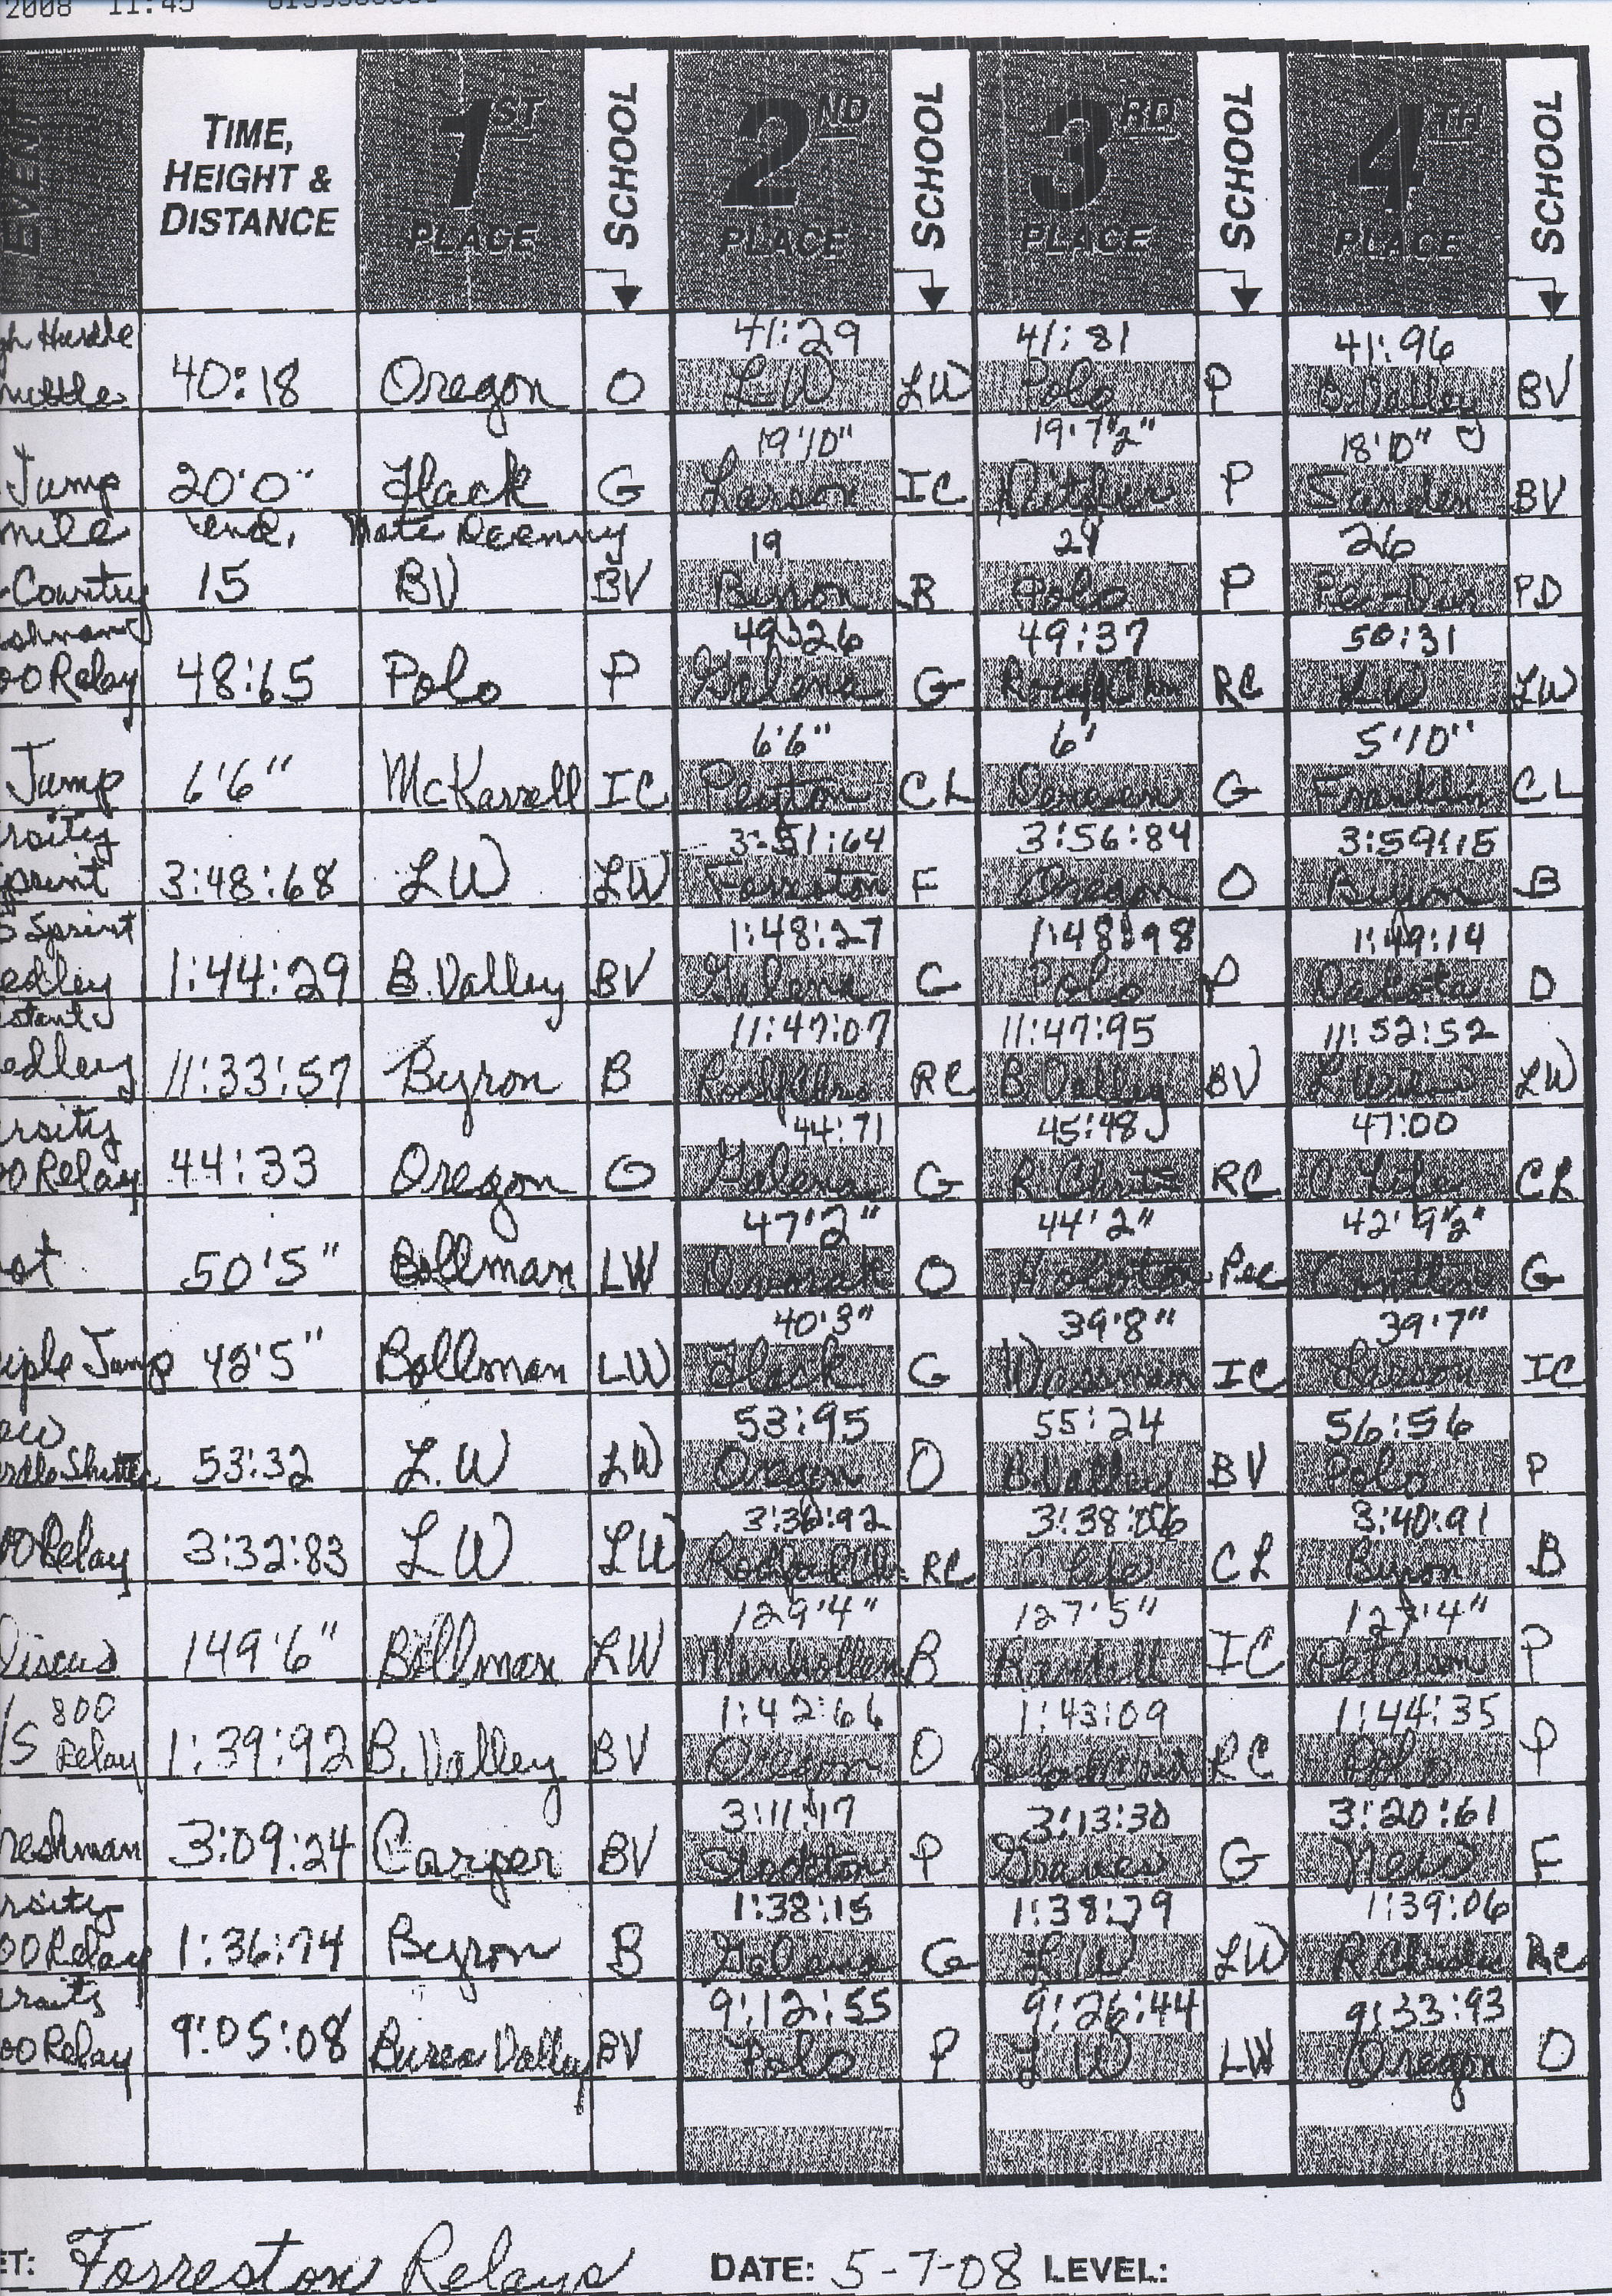 2008 11:45
EVENT TIME, HEIGHT & DISTANCE 1ST PLACE SCHOOL 2ND PLACE SCHOOL 3RD PLACE SCHOOL 4TH PLACE SCHOOL
gh Hurdle 41:29 41:81 41:96
40:18 Oregon O LW LW Polo P B.Valley BV
19'10" 18'10"
Jump 20'0" Flack G Larson IC P BV
mile ind. Nate 19 26
-Country 15 BV BV Byron Polo P PD
49:26 49:37 50:31
00 Relay 48:65 Polo P Galena G RC LW LW
6'6" 6' 5'10"
Jump 6'6" McKarrell IC Peyton CL G Franklin CL
rsity 3:51:64 3:56:84 3:59:15
print 3:48:68 LW LW Forreston F Oregon O Byron B
Sprint 1:48:27 1:48:98 1:49:14
edley 1:44:29 B.Valley BV Galena G Polo P Dakota D
11:47:07 11:47:95 11:52:52
edley 11:33:57 Byron B RC B.Valley BV LW
rsity 44:71 45:48 47:00
00 Relay 44:33 Oregon O Galena G R.Chris RC C Life CL
47'2" 44'2"
ot 50'5" Bollman LW O Pec G
40'3" 39'8" 39'7"
iple Jump 42'5" Bollman LW Flack G Wassman IC Larson IC
ow 53:95 55:24 56:56
53:32 L.W LW Oregon O B.Valley BV Polo P
3:36:92 3:38:06 3:40:91
00 Relay 3:32:83 LW LW RC C Life CL Byron B
129'4" 127'5"
Discus 149'6" Bollman LW B IC Peterson P
/S 800 1:42:61 1:43:09 1:44:35
Relay 1:39:92 B.Valley BV Oregon O RC Polo P
3:11:17 3:13:30 3:20:61
reshman 3:09:24 Carper BV Stockton P Graves G New F
rsity 1:38:15 1:38:79 1:39:06
00 Relay 1:36:74 Byron B Galena G LW LW RC
9:12:55 9:26:44 9:33:93
00 Relay 9:05:08 Bureau Valley BV Polo P LW LW Oregon O
ET: Forreston Relays DATE: 5-7-08 LEVEL: